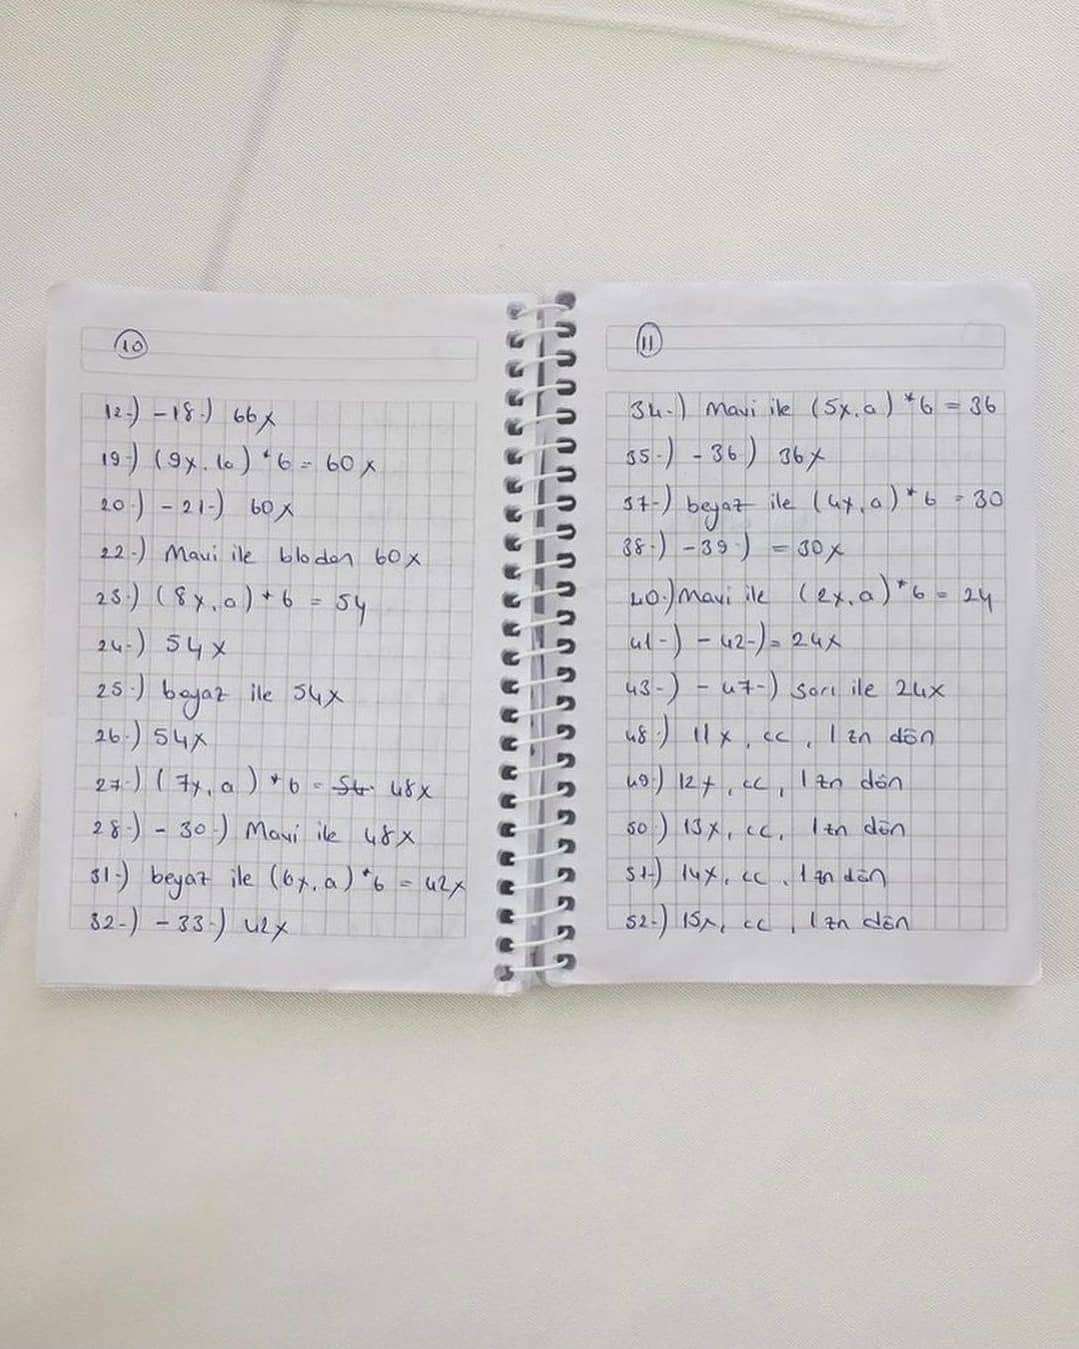 10
12-) - 18-) 66x
19-) (9x, 1a) *6 = 60x
20-) - 21-) 60x
22-) Mavi ile bloden 60x
23-) (8x, a) *6 = 54
24-) 54x
25-) beyaz ile 54x
26-) 54x
27-) (7x, a) *6 = 54 48x
28-) - 30-) Mavi ile 48x
31-) beyaz ile (6x, a) *6 = 42x
32-) - 33-) 42x
11
34-) Mavi ile (5x, a) *6 = 36
35-) - 36) 36x
37-) beyaz ile (4x, a) *6 = 30
38-) - 39-) = 30x
40-) Mavi ile (2x, a) *6 = 24
41-) - 42-) = 24x
43-) - 47-) Sarı ile 24x
48-) 11x, cc, 1 zn dön
49-) 12x, cc, 1 zn dön
50-) 13x, cc, 1 zn dön
51-) 14x, cc, 1 zn dön
52-) 15x, cc, 1 zn dön